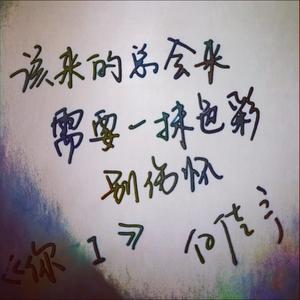 该来的总会来
需要一抹色彩
别伤怀
《你 1》 何佳